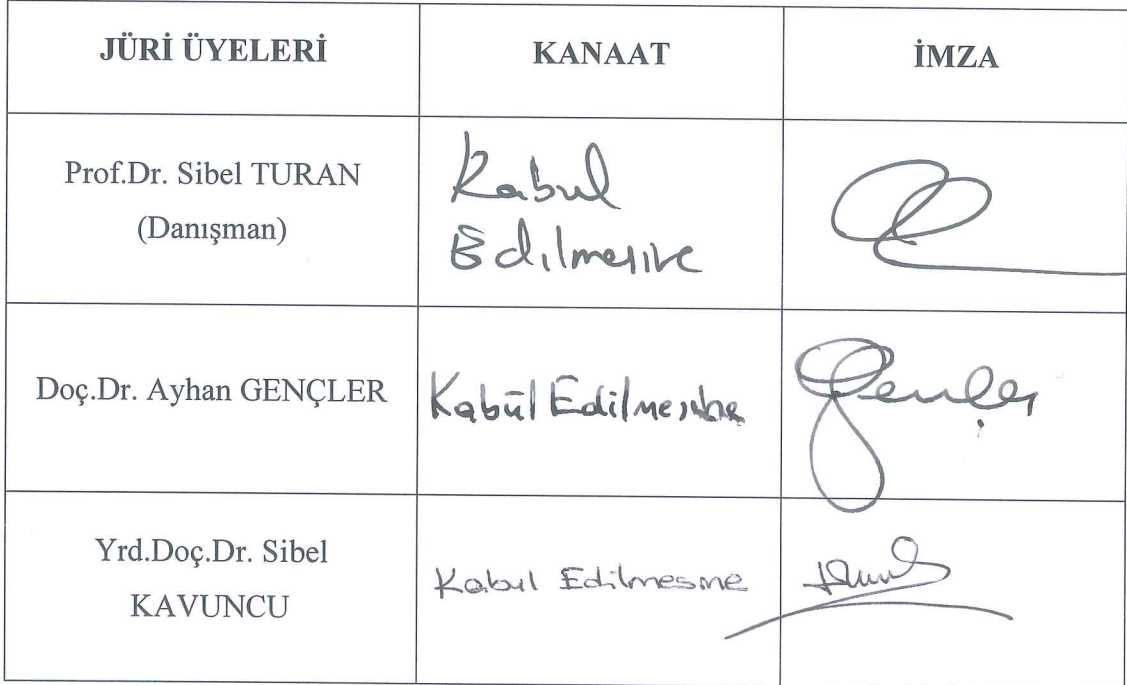 JÜRİ ÜYELERİ KANAAT İMZA
Prof.Dr. Sibel TURAN
(Danışman)
Kabul
Edilmesine
Doç.Dr. Ayhan GENÇLER
Kabûl Edilmesine
Gençler
Yrd.Doç.Dr. Sibel
KAVUNCU
Kabul Edilmesine